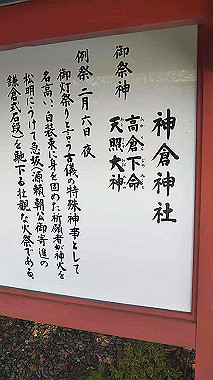 神倉神社
御祭神
高倉下命
天照大神
例祭 二月六日 夜
御灯祭りと言う古儀の特殊神事として
名高い、白装束に身を固めた祈願者が神火を
松明にうけて急坂(源頼朝公御寄進の
鎌倉式石段)を馳下る壮観な火祭である。